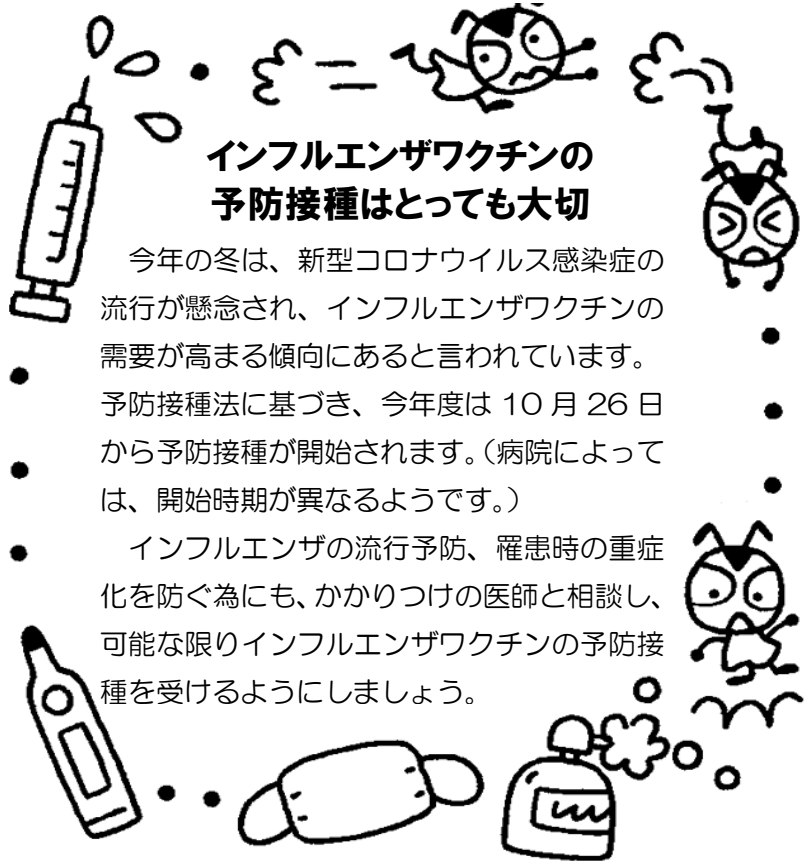 インフルエンザワクチンの
予防接種はとっても大切
　今年の冬は、新型コロナウイルス感染症の
流行が懸念され、インフルエンザワクチンの
需要が高まる傾向にあると言われています。
予防接種法に基づき、今年度は 10 月 26 日
から予防接種が開始されます。（病院によって
は、開始時期が異なるようです。）
　インフルエンザの流行予防、罹患時の重症
化を防ぐ為にも、かかりつけの医師と相談し、
可能な限りインフルエンザワクチンの予防接
種を受けるようにしましょう。